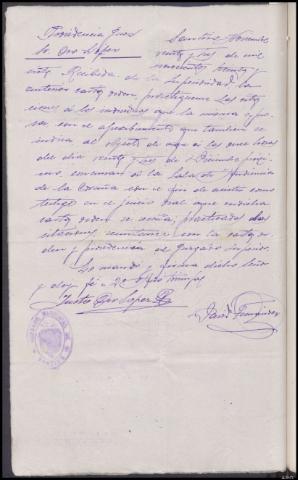 Providencia Juez
Sr. Oro Lopez
Noviembre
veinte y seis de mil
novecientos treinta y
siete. Recibida de la Superioridad la
anterior carta orden practiquense las cita
ciones de los individuos que la misma expre
sa con el apercibimiento que tambien se
indica al objeto de que a las once horas
del dia veinte y seis de proxi
mo, concurran a la Sala de Audiencia
de la Coruña con el fin de asistir como
testigo en el juicio oral que en dicha
carta orden se reseña; practicadas las
citaciones remitase con la carta or
den y providencia al Juzgado inferior.
Lo mando y firma dicho señor
y doy fe
Justo Oro Lopez
David Fernandez